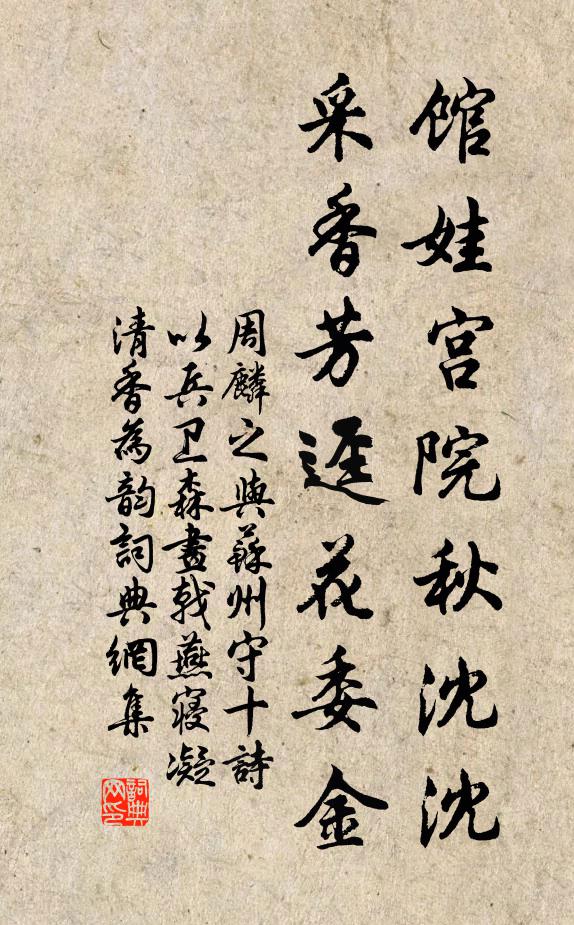 館娃宫院秋沈沈
采香芳逕花委金
周麟之與蘇州守十詩
以兵卫森畫戟燕寢凝
清香為韵詞典網集
詞典网印